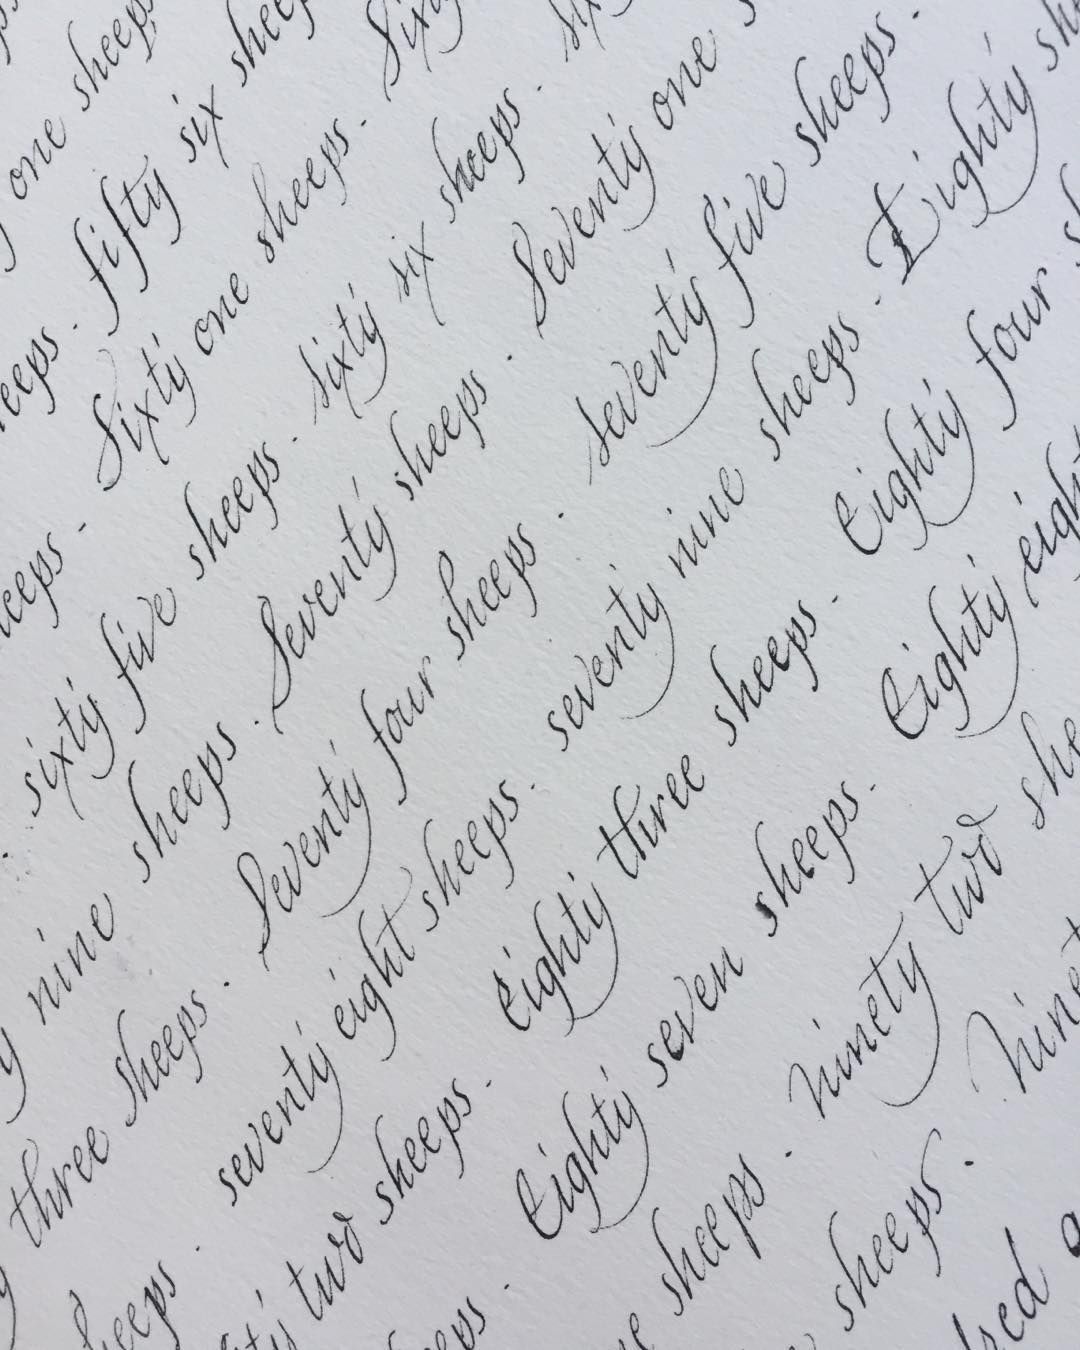 one sheeps
fifty six sheep
Sixty one sheeps. Sixty
sixty five sheeps. Sixty six sheeps. six
nine sheeps. Seventy sheeps. Seventy one
three sheeps. Seventy four sheeps. seventy five sheeps.
sheeps. seventy eight sheeps. seventy nine sheeps. Eighty sh
two sheeps. Eighty three sheeps. Eighty four
Eighty seven sheeps. Eighty eigh
sheeps. Ninety two she
sheeps. Ninet